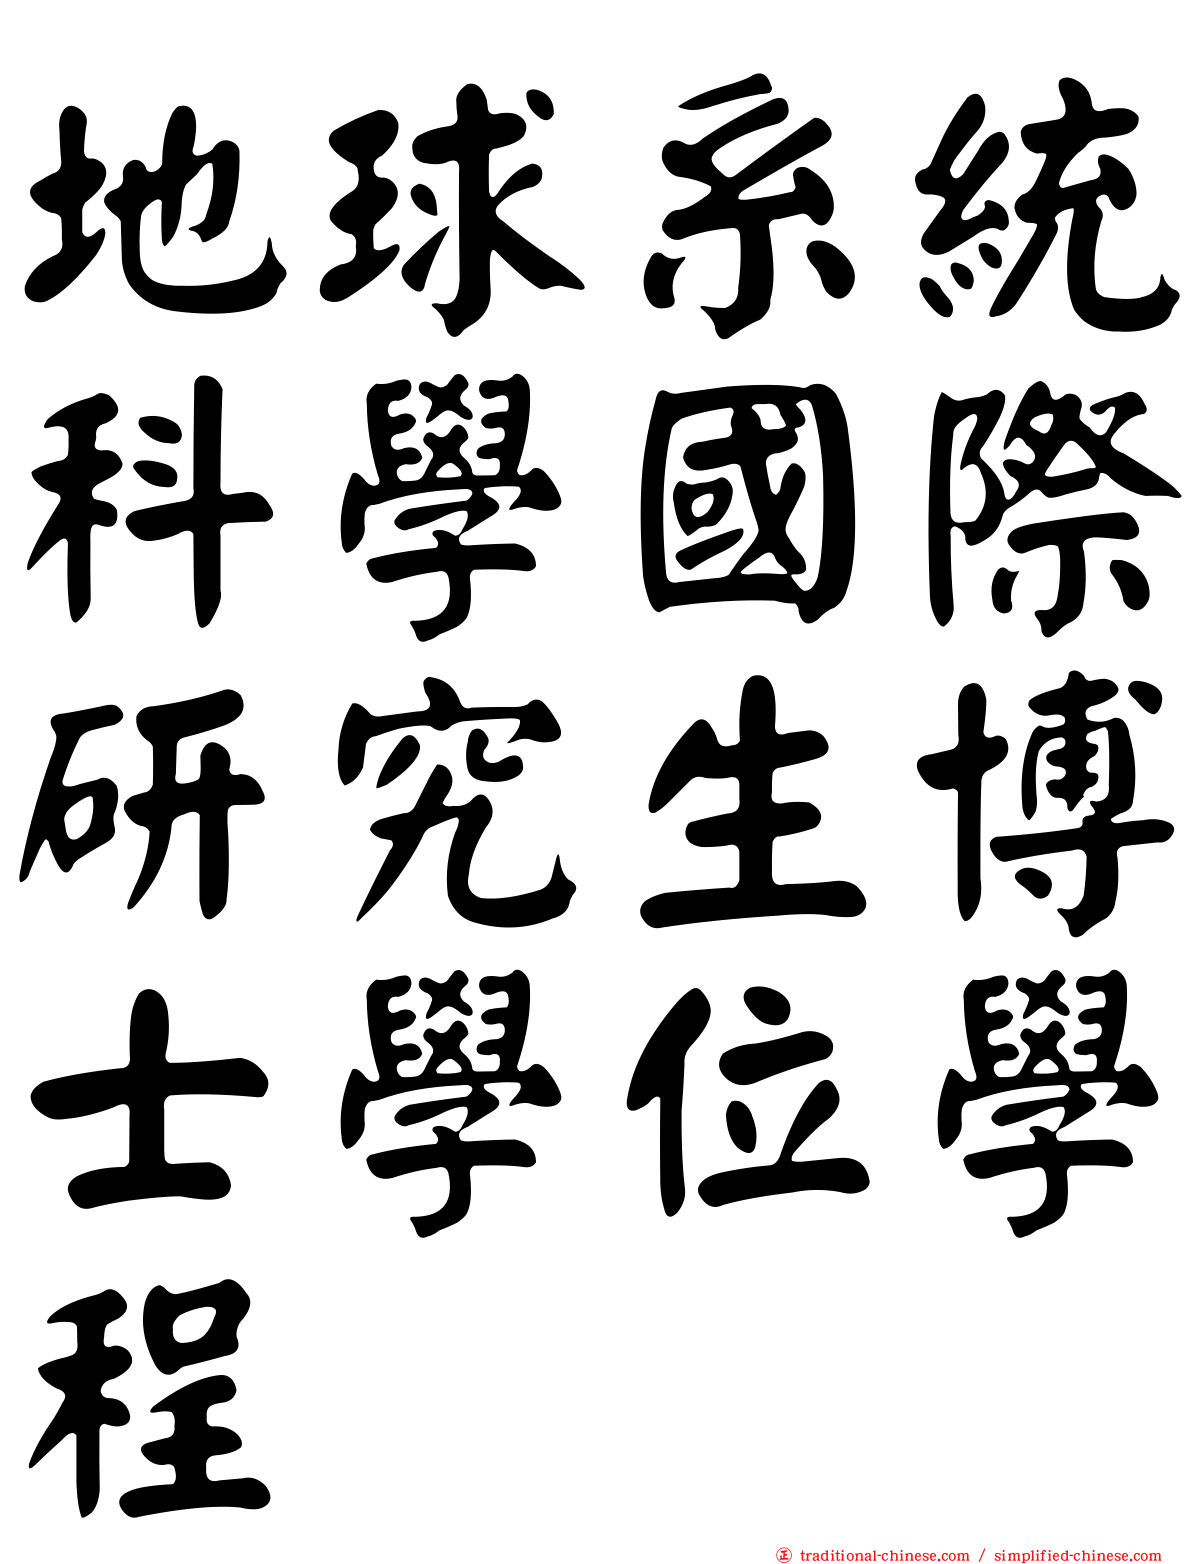 地球系統
科學國際
研究生博
士學位學
程
㊣ traditional-chinese.com / simplified-chinese.com